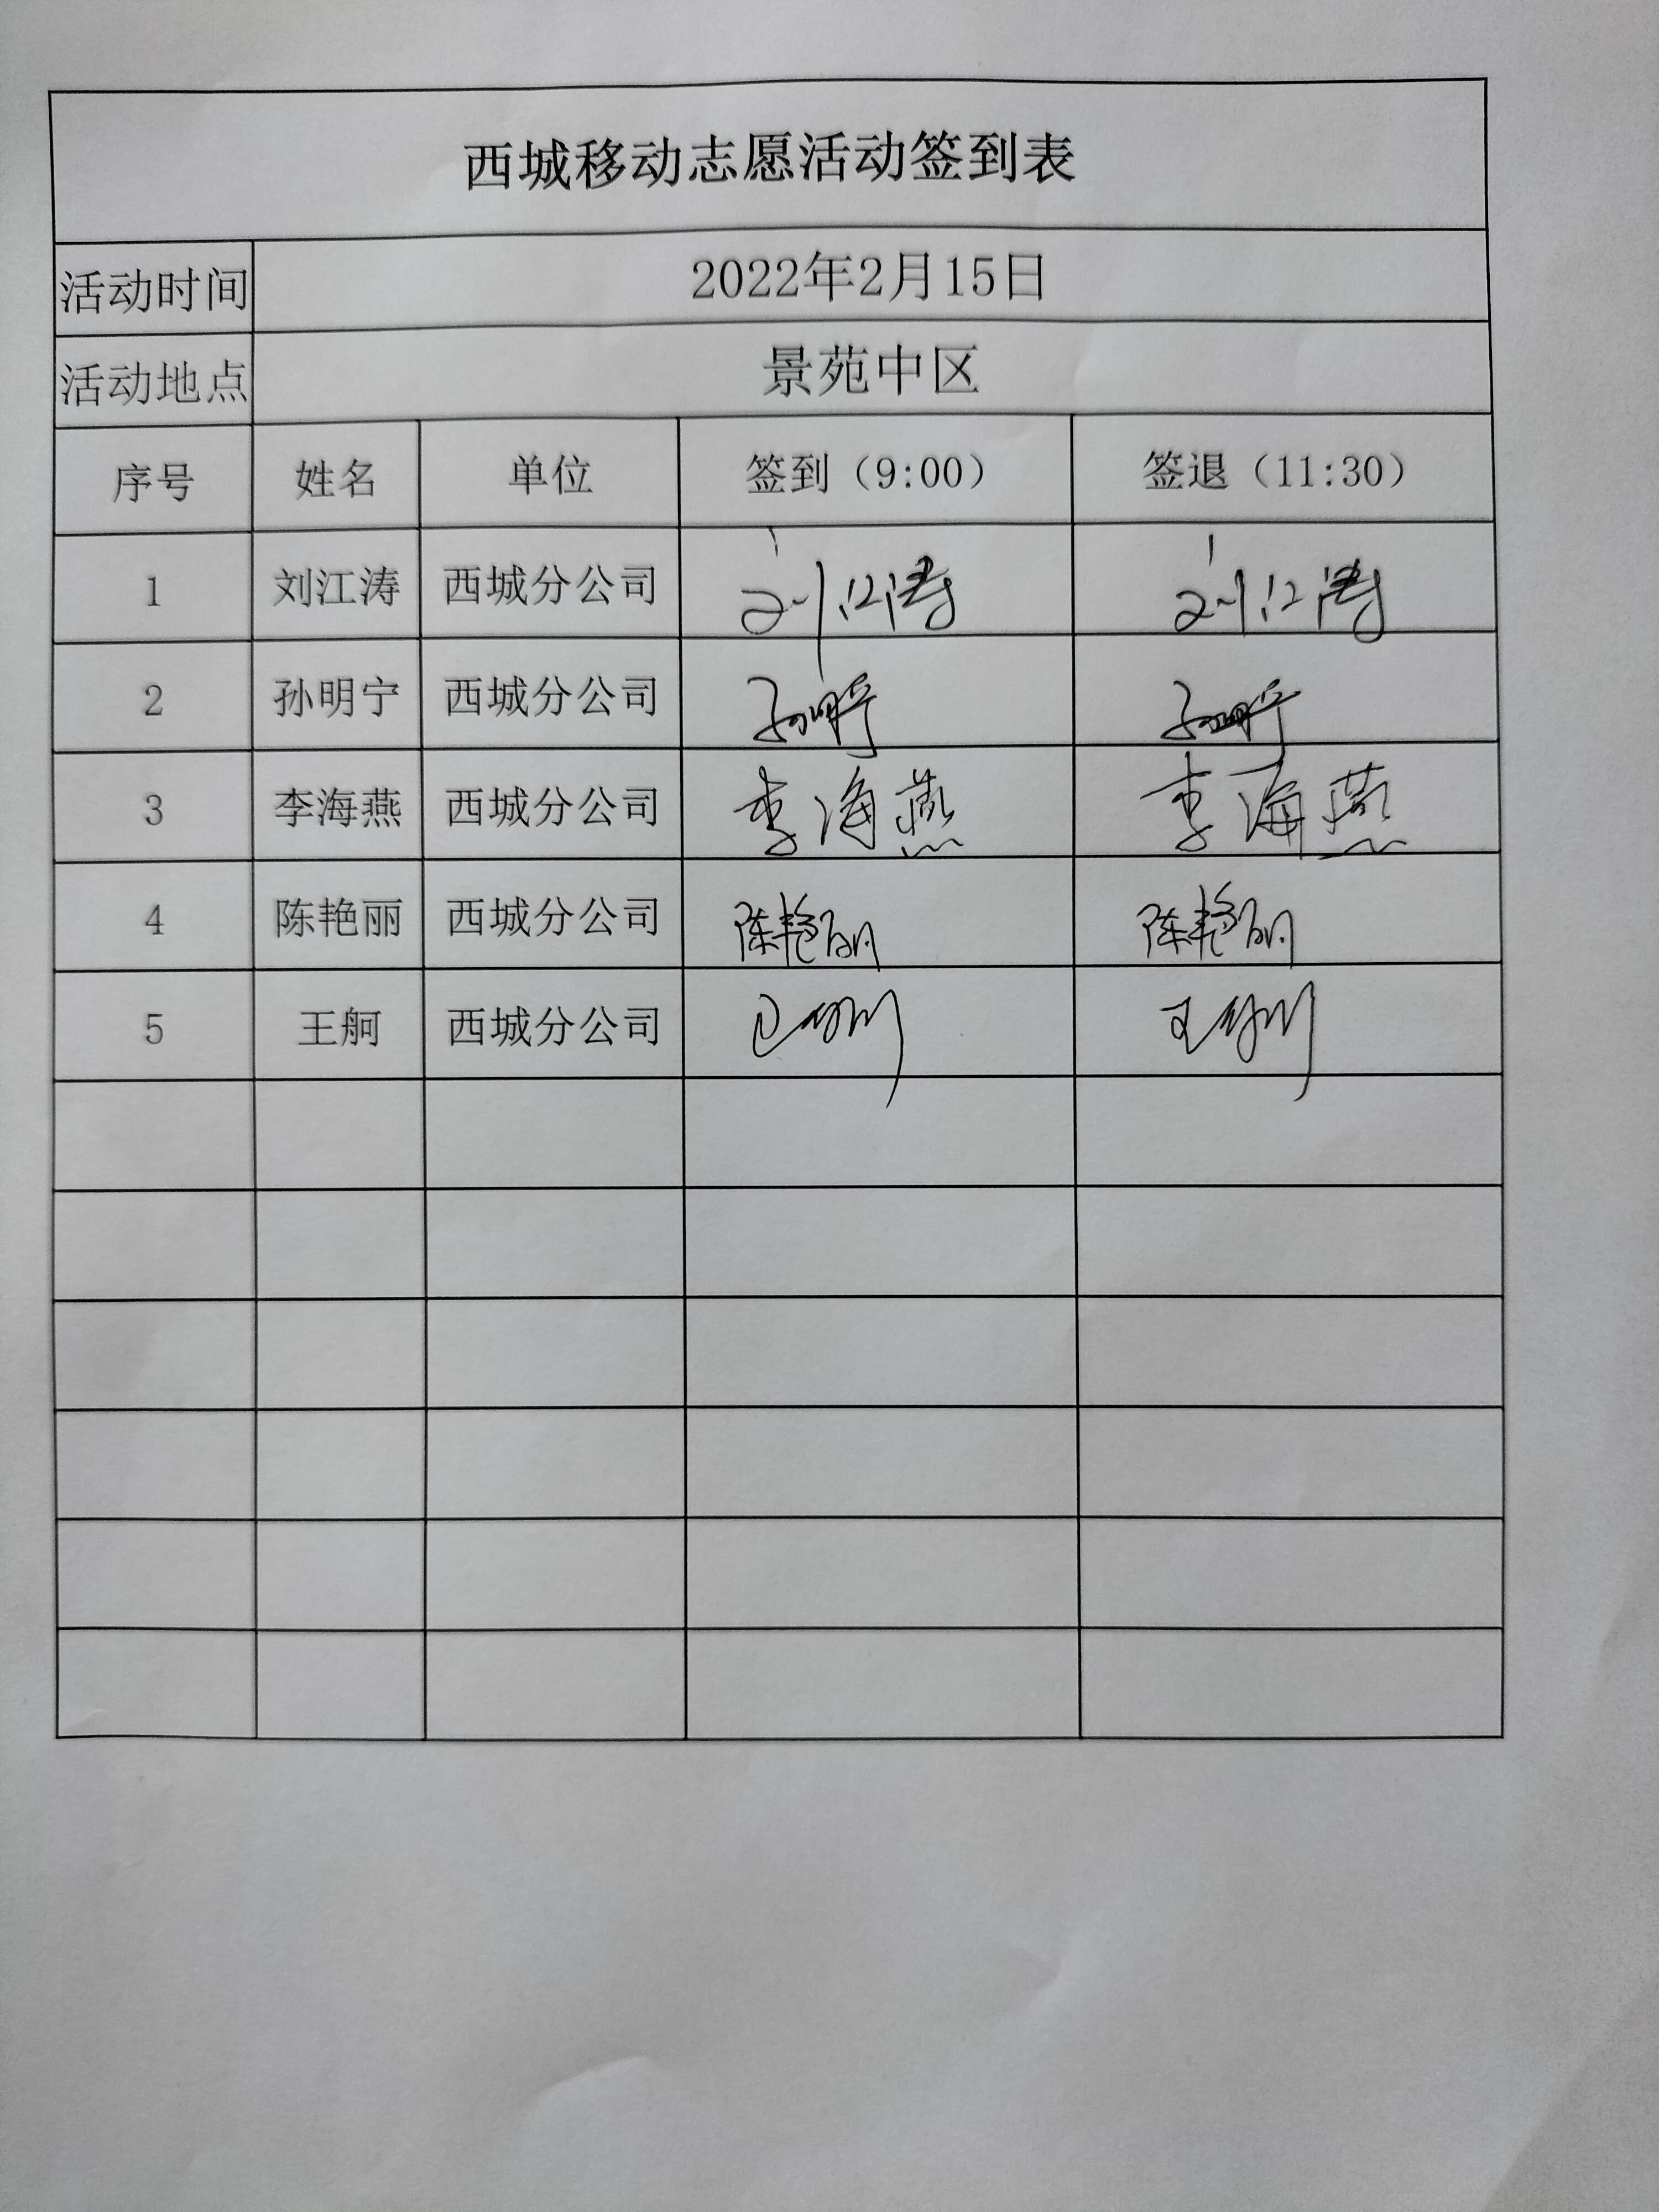 西城移动志愿活动签到表
活动时间 2022年2月15日
活动地点 景苑中区
序号 姓名 单位 签到（9:00） 签退（11:30）
1 刘江涛 西城分公司 刘江涛 刘江涛
2 孙明宁 西城分公司 孙明宁 孙明宁
3 李海燕 西城分公司 李海燕 李海燕
4 陈艳丽 西城分公司 陈艳丽 陈艳丽
5 王舸 西城分公司 王舸 王舸